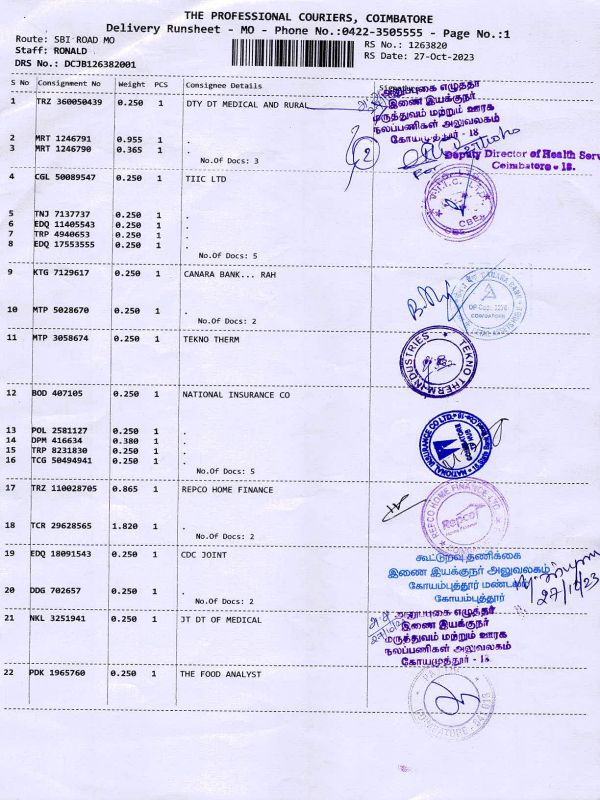 THE PROFESSIONAL COURIERS, COIMBATORE
Delivery Runsheet - MO - Phone No.:0422-3505555 - Page No.:1
Route: SBI ROAD MO
RS No.: 1263820
Staff: RONALD
RS Date: 27-Oct-2023
DRS No.: DCJB126382001
S No Consignment No Weight PCS Consignee Details Signature
1 TRZ 360050439 0.250 1 DTY DT MEDICAL AND RURAL
அலுவலகம்
இணை இயக்குநர்
மருத்துவம் மற்றும் ஊரக
நலப்பணிகள் அலுவலகம்
கோயமுத்தூர் - 18
2 MRT 1246791 0.955 1 .
3 MRT 1246790 0.365 1 .
2
No.Of Docs: 3
Deputy Director of Health Serv
Coimbatore - 18.
4 CGL 50089547 0.250 1 TIIC LTD
CBE
5 TNJ 7137737 0.250 1 .
6 EDQ 11405543 0.250 1 .
7 TRP 4940653 0.250 1 .
8 EDQ 17553555 0.250 1 .
No.Of Docs: 5
9 KTG 7129617 0.250 1 CANARA BANK... RAH
CANARA BANK
COIMBATORE
10 MTP 5028670 0.250 1 .
No.Of Docs: 2
11 MTP 3058674 0.250 1 TEKNO THERM
TEKNO THERM INDUSTRIES
12 BOD 407105 0.250 1 NATIONAL INSURANCE CO
NATIONAL INSURANCE CO LTD
13 POL 2581127 0.250 1 .
14 DPM 416634 0.380 1 .
15 TRP 8231830 0.250 1 .
16 TCG 50494941 0.250 1 .
No.Of Docs: 5
17 TRZ 110028705 0.865 1 REPCO HOME FINANCE
REPCO HOME FINANCE LTD
Repco
18 TCR 29628565 1.820 1 .
No.Of Docs: 2
19 EDQ 18091543 0.250 1 CDC JOINT
கூட்டுறவு தணிக்கை
இணை இயக்குநர் அலுவலகம்
கோயம்புத்தூர் மண்டலம்
கோயம்புத்தூர்
27/10/23
20 DDG 702657 0.250 1 .
No.Of Docs: 2
21 NKL 3251941 0.250 1 JT DT OF MEDICAL
இணை இயக்குநர்
மருத்துவம் மற்றும் ஊரக
நலப்பணிகள் அலுவலகம்
கோயமுத்தூர் - 18
22 PDK 1965760 0.250 1 THE FOOD ANALYST
COIMBATORE - 641018